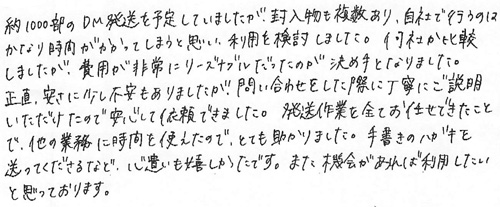 約1000部のDM発送を予定していましたが、封入物も複数あり、自社で行うのは
かなり時間がかかってしまうと思い、利用を検討しました。何社か比較
しましたが、費用が非常にリーズナブルだったのが決め手となりました。
正直、安さに少し不安もありましたが、問い合わせをした際に丁寧にご説明
いただけたので安心して依頼できました。発送作業を全てお任せできたこと
で、他の業務に時間を使えたので、とても助かりました。手書きのハガキを
送ってくださるなど、心遣いも嬉しかったです。また機会があれば利用したい
と思っております。